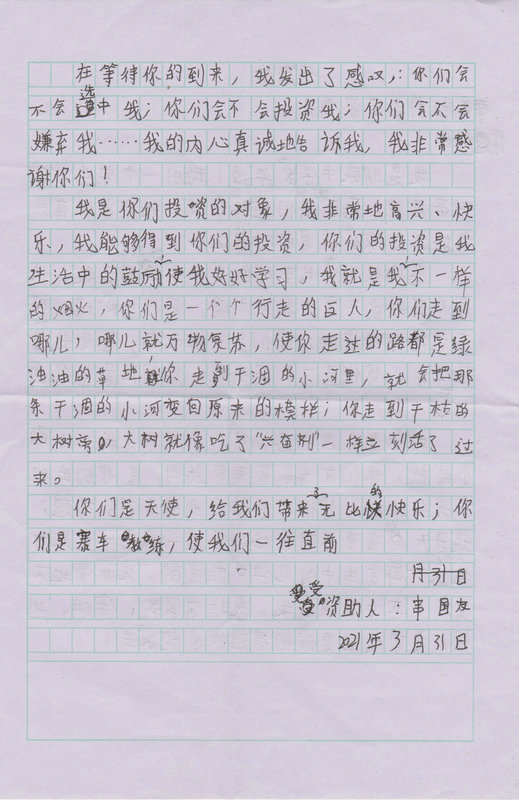 在等待你的到来，我发出了感叹，：你们会
不会选中我；你们会不会投资我；你们会不会
嫌弃我……我的内心真诚地告诉我，我非常感
谢你们！
我是你们投资的对象，我非常地高兴、快
乐，我能够得到你们的投资，你们的投资是我
生活中的鼓励使我好好学习，我就是我不一样
的烟火，你们是一个个行走的巨人，你们走到
哪儿，哪儿就万物复苏，使你走过的路都是绿
油油的草地你走到干涸的小河里，就会把那
条干涸的小河变回原来的模样；你走到干枯的
大树旁，大树就像吃了“兴奋剂”一样立刻活了过
来。
你们是天使，给我们带来了无比的快乐；你
们是赛车教练，使我们一往直前
月31日
受资助人：国友
2021年3月31日